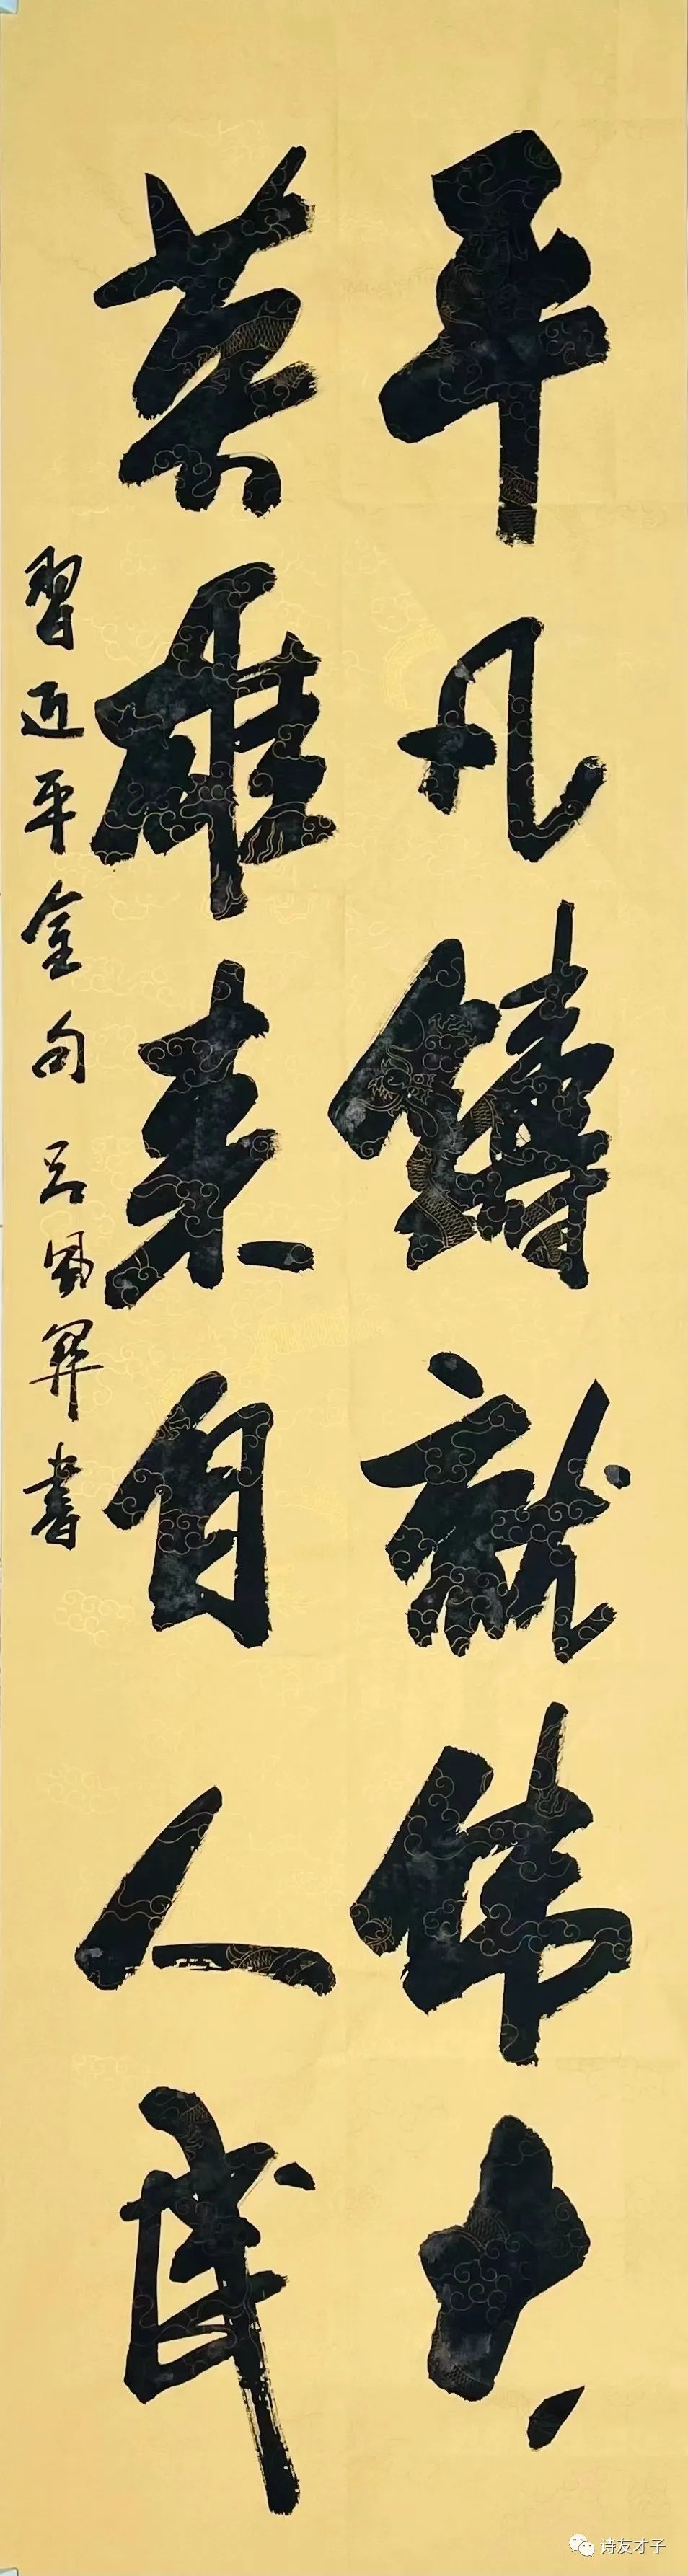 平凡鑄就伟大
英雄来自人民
習近平金句 吕書
诗友才子